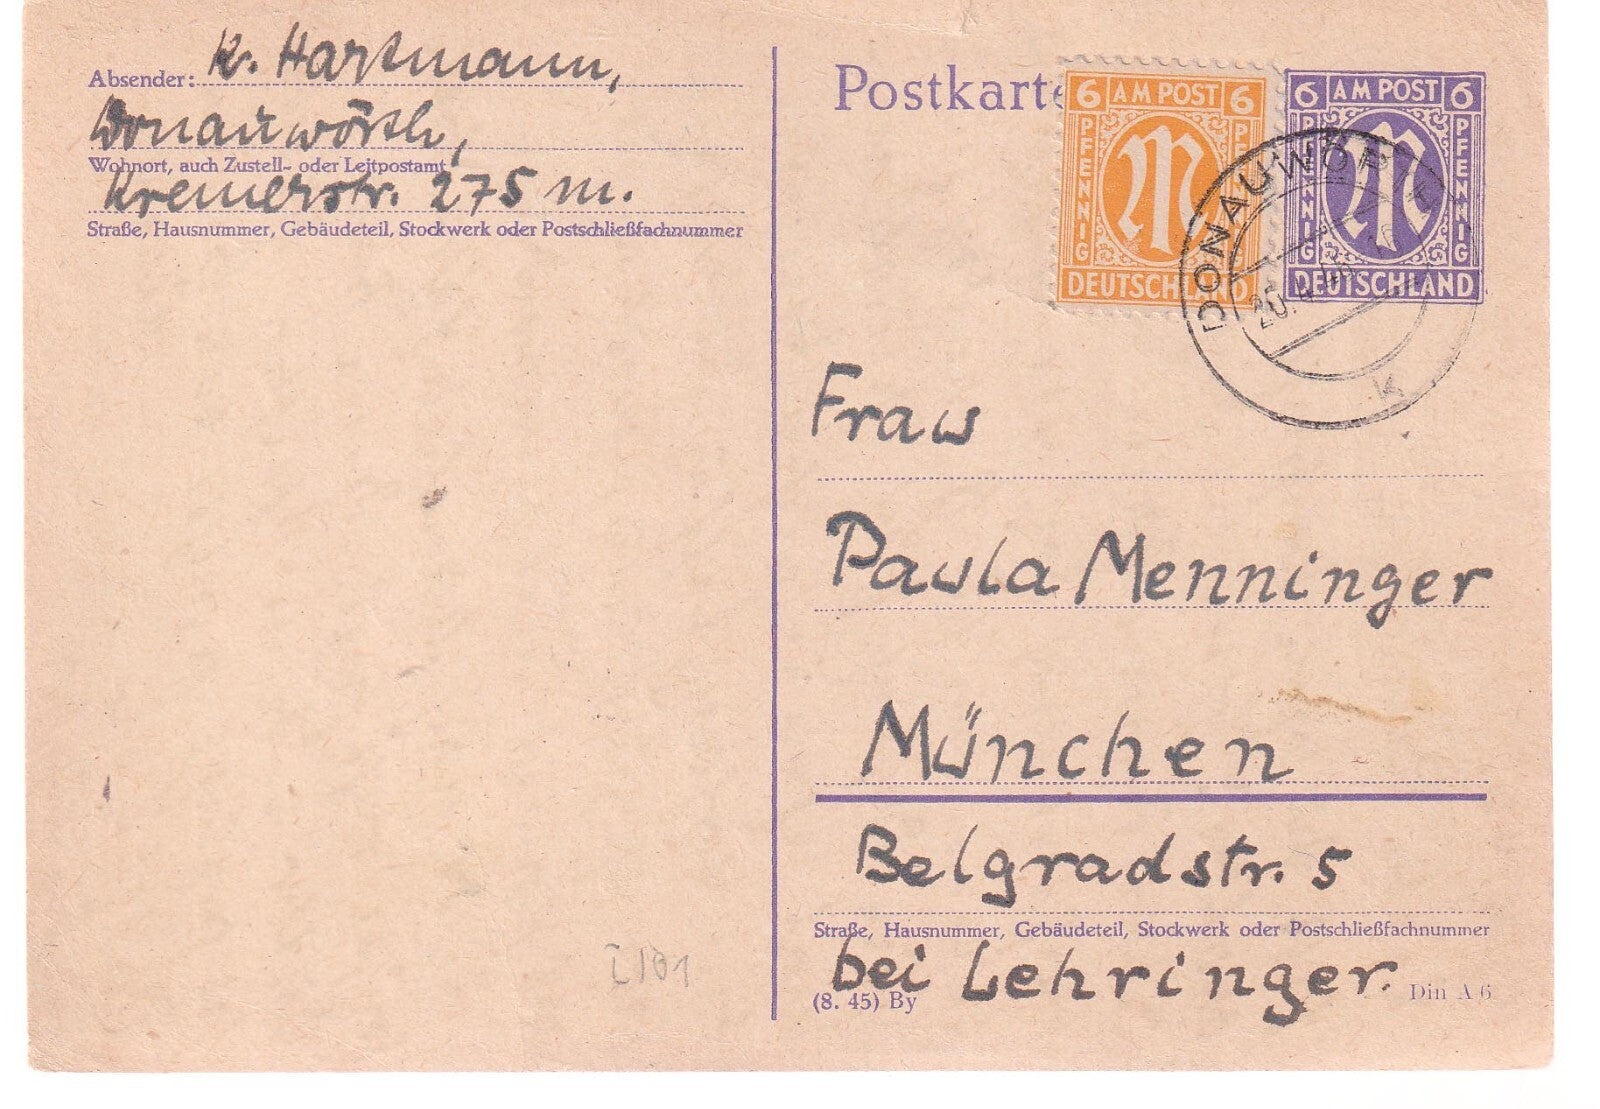 Absender: K. Hartmann,
Donauwörth,
Wohnort, auch Zustell- oder Leitpostamt
Kremerstr. 275 m.
Straße, Hausnummer, Gebäudeteil, Stockwerk oder Postschließfachnummer
Postkarte
6 AM POST 6
PFENNIG
PFENNIG
DEUTSCHLAND
6 AM POST 6
PFENNIG
PFENNIG
DEUTSCHLAND
DONAUWÖRTH
20.4.
k
Frau
Paula Menninger
München
Belgradstr. 5
Straße, Hausnummer, Gebäudeteil, Stockwerk oder Postschließfachnummer
bei Lehringer.
(8. 45) By
Din A 6